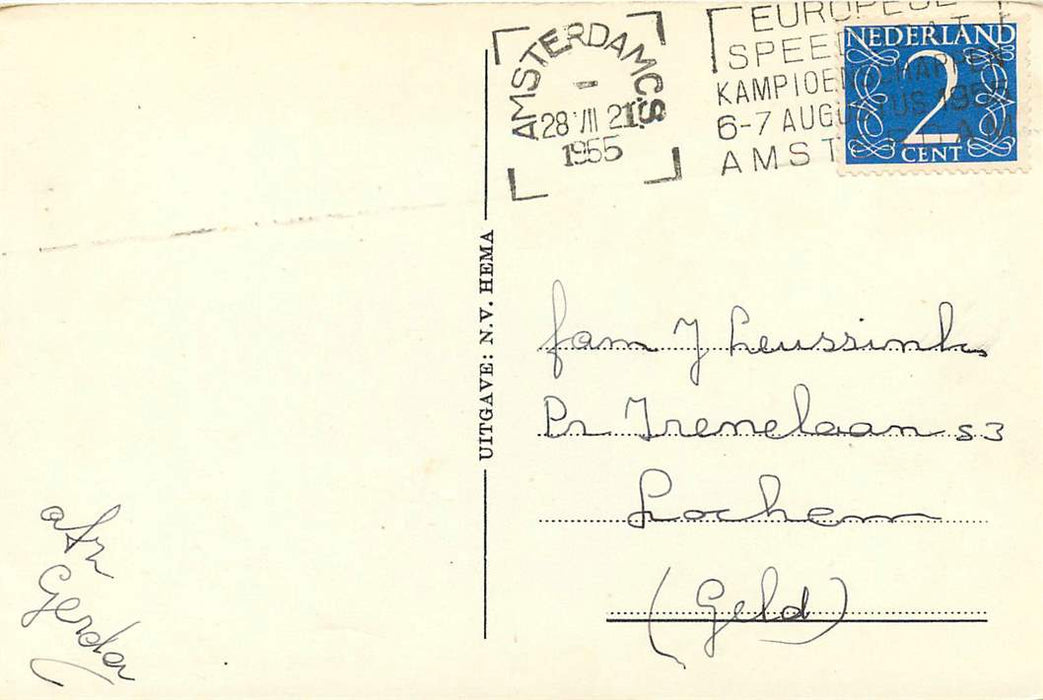 AMSTERDAM C.S.
28 VII 21
1955
EUROPESE
SPEEDBOAT
KAMPIOENSCHAPPEN
6-7 AUGUSTUS 1955
AMSTERDAM
NEDERLAND
2
CENT
UITGAVE: N.V. HEMA
fam J Leussink
Pr Irenelaan 53
Lochem
(Geld)
afz
Gerda